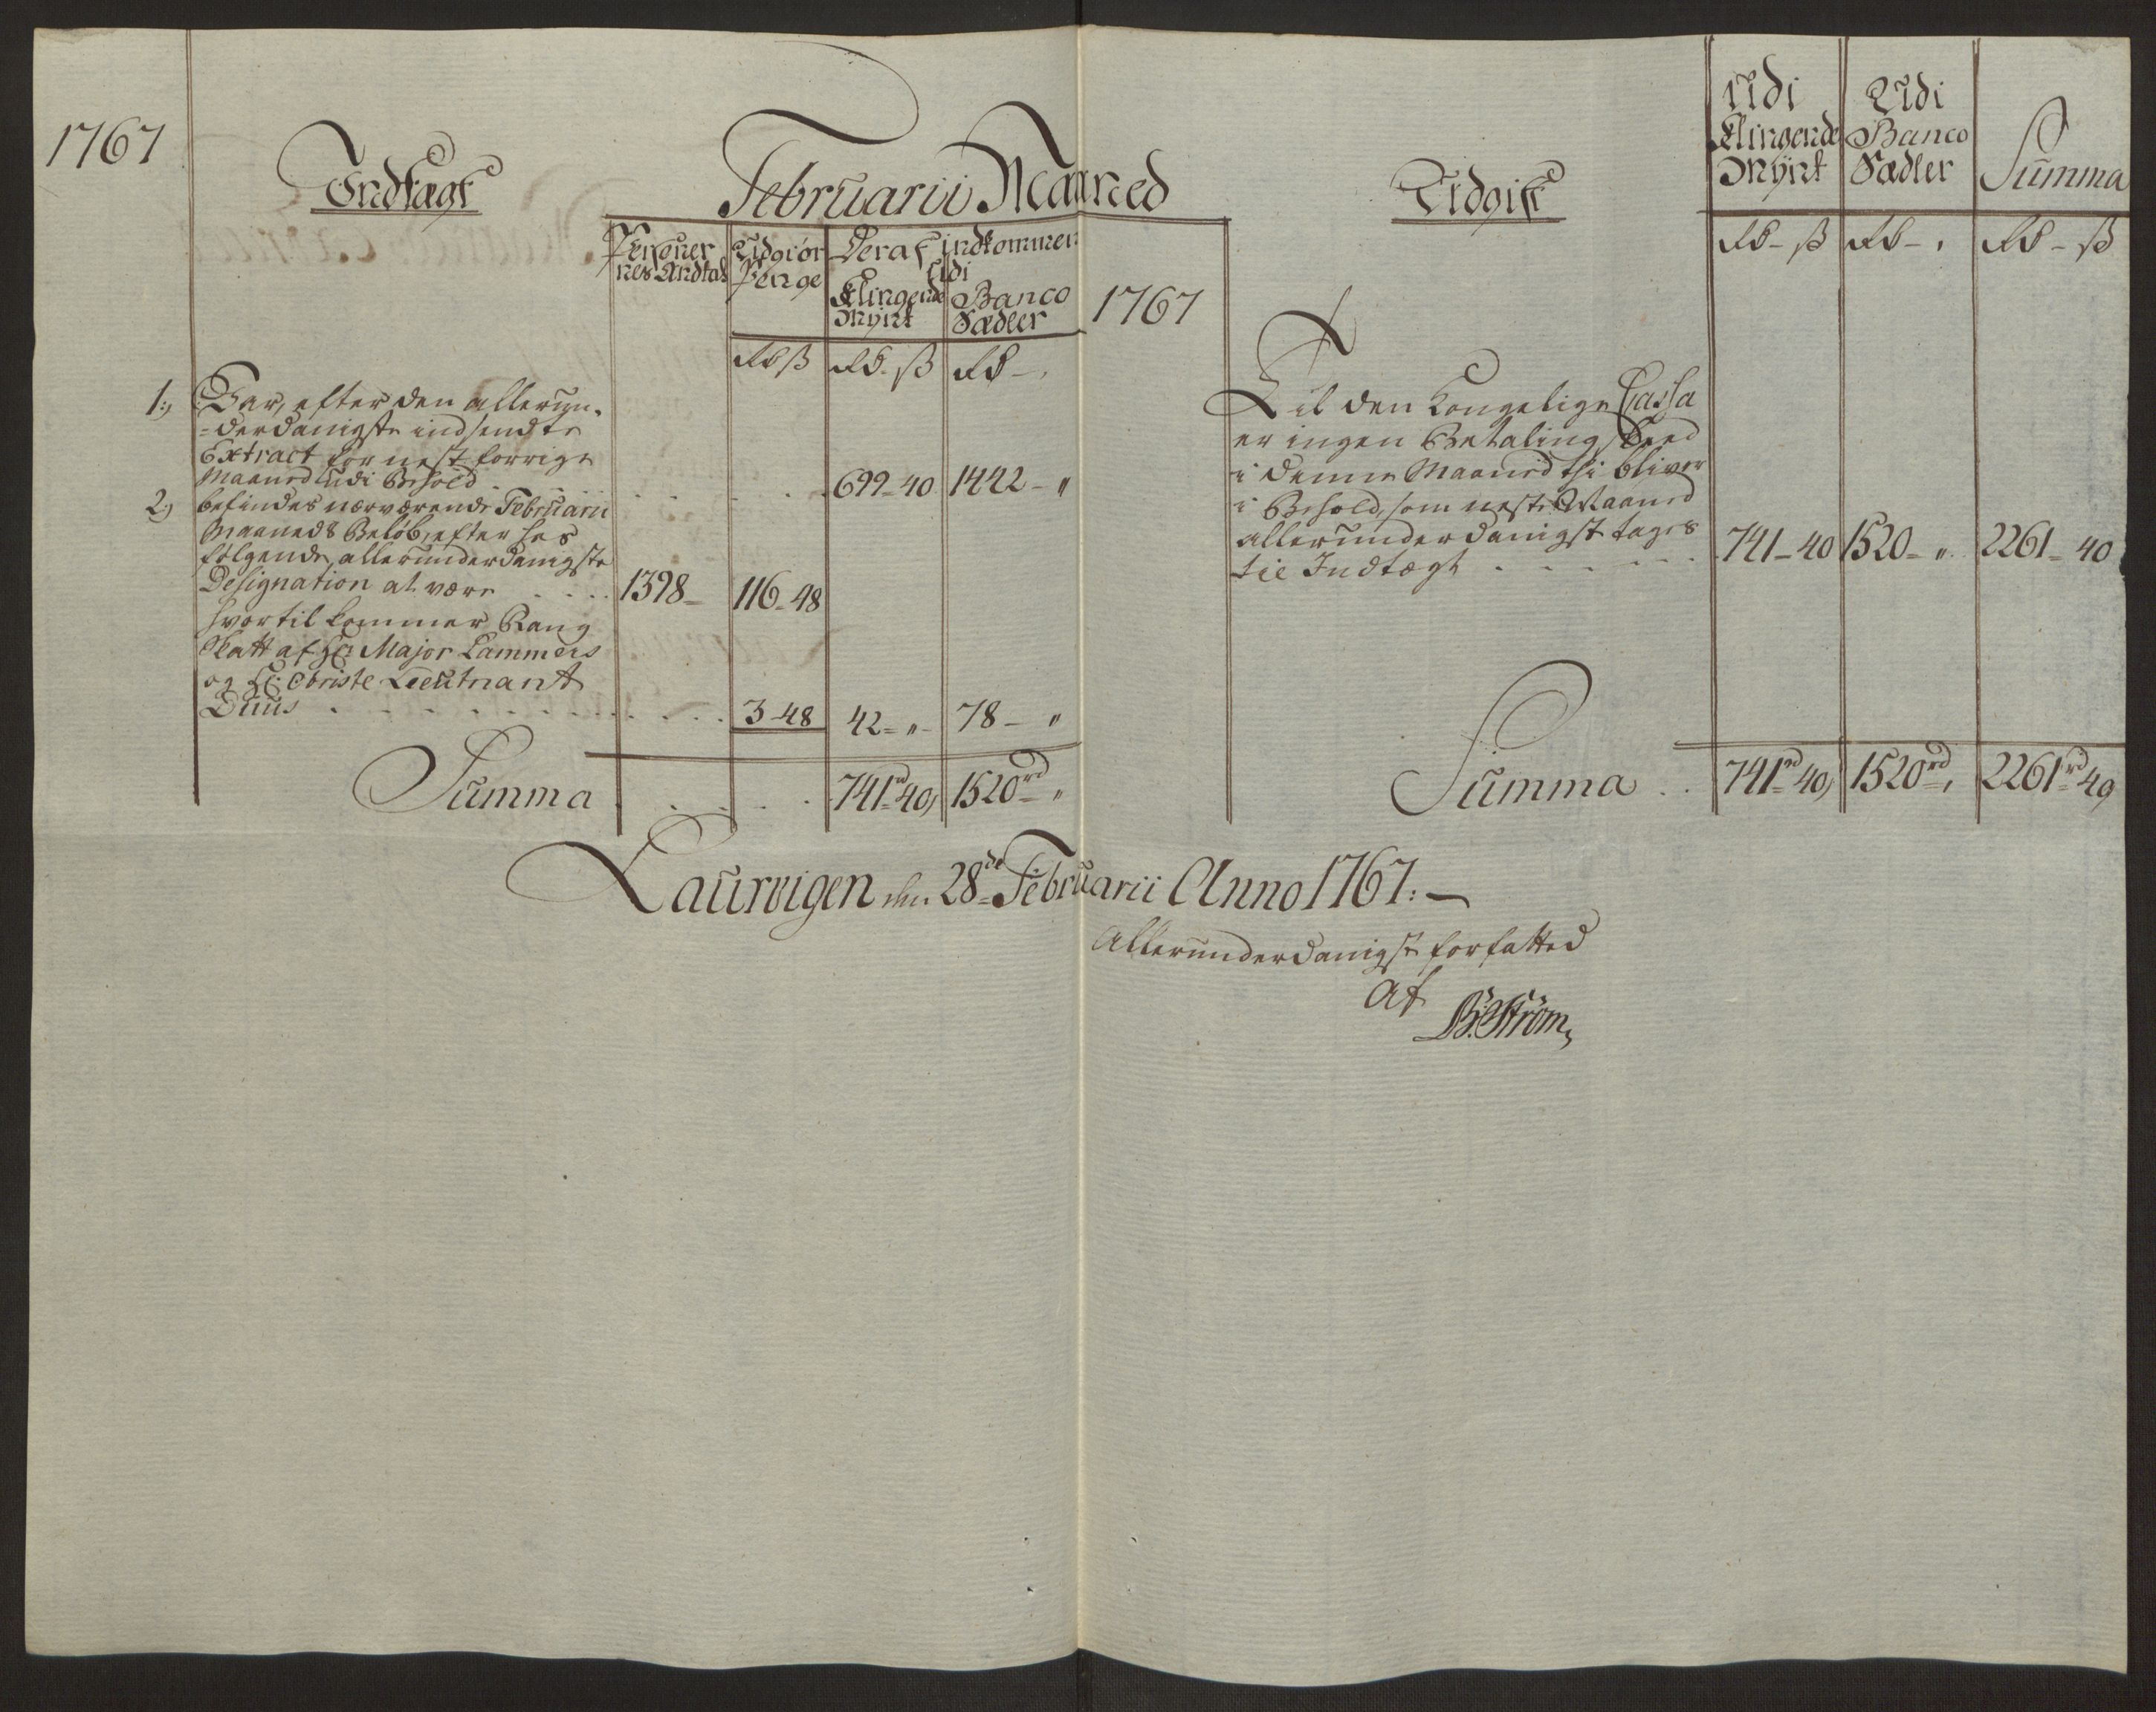 1767
Indtægt
Februarii Maaned
Personer
nes Andtal
Udgiør
Penge
Deraf indkommen
Udi
Klingende
Mynt
Banco
Sædler
Rd ß
Rd - ß
Rd -
1:) Var, efter den allerun-
=derdanigste indsendte
Extract for nest forrige
Maaned udi Behold . . . . 699 - 40 1442 - "
2:) befindes nærværende Februarii
Maaneds Beløb, efter hos
følgende, allerunderdanigste
Designation at være . . . . 1398 - 116 - 48
hvortil kommer Rang
Skatt af Hr: Major Lammers
og Hr: Obriste Lieutnant
Duus . . . . . . . . . . 3 - 48 42 - " - 78 - "
Summa . . . . . 741rd 40, 1520rd "
1767
Udgift
Udi
Klingende
Mynt
Udi
Banco
Sædler
Summa
Rd - ß
Rd - ,
Rd - ß
Til den Kongelige Cassa
er ingen Betaling skeed
i denne Maaned thi bliver
i Behold, som neste Maaned
allerunderdanigst tages
til Indtægt . . . . . . 741 - 40 1520 - " 2261 - 40
Summa . . 741rd 40, 1520rd, 2261rd 40,
Laurvigen den 28de Februarii Anno 1767. —
Allerunderdanigst forfatted
Af
B: Strøm,